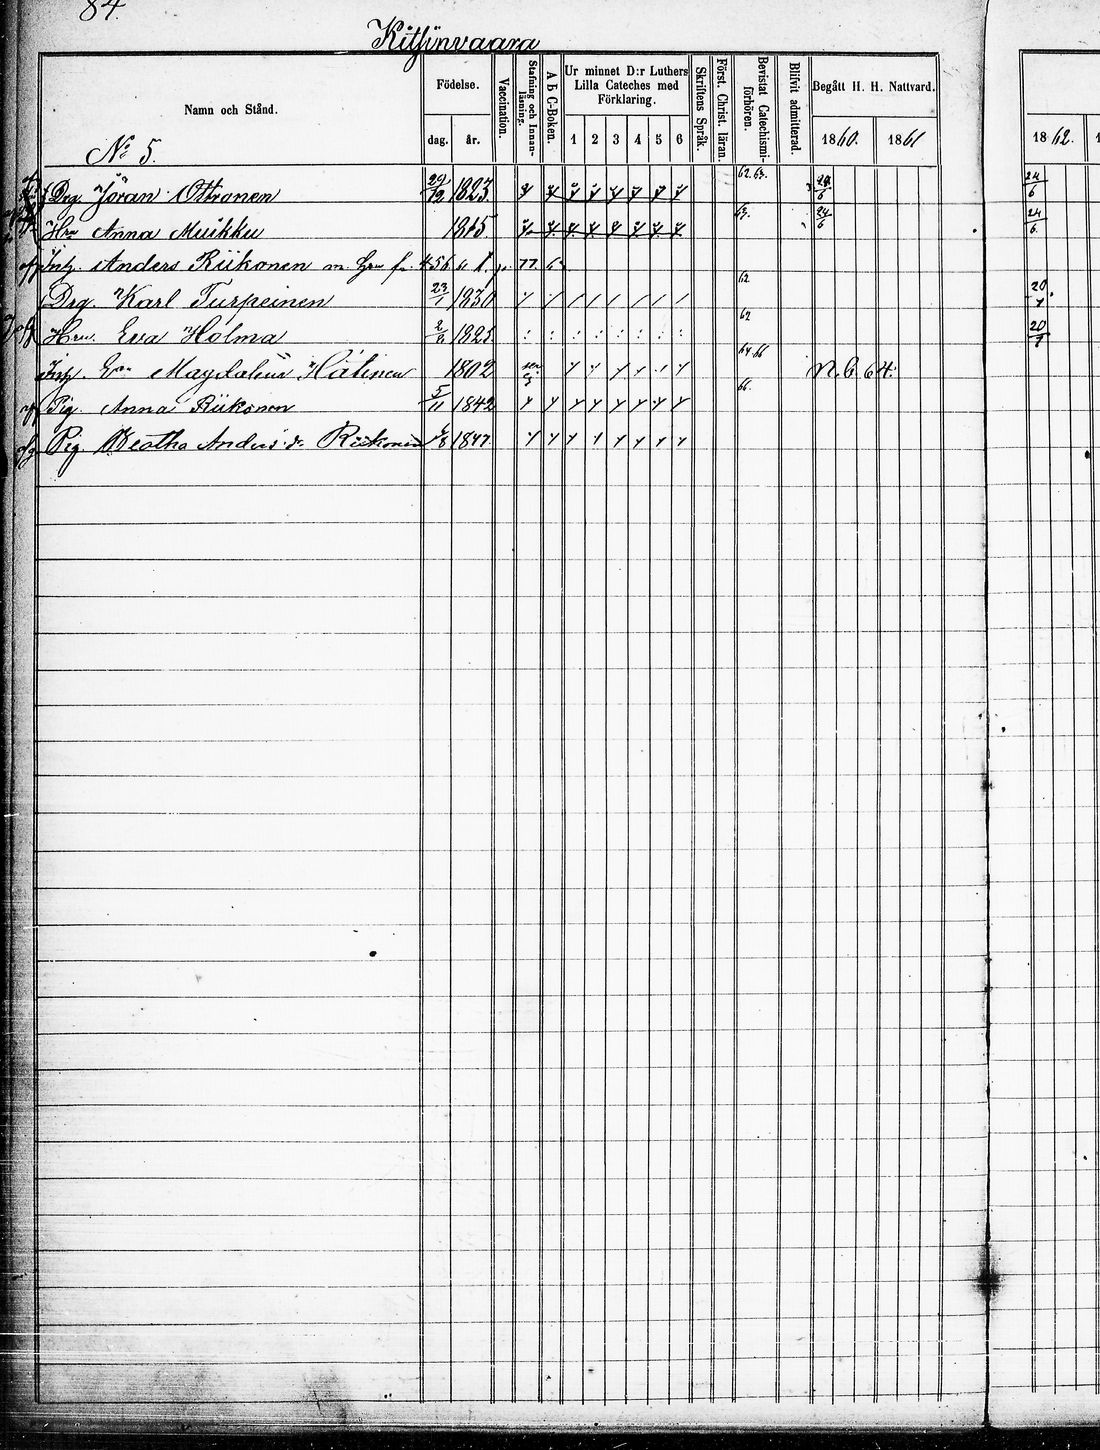 84
Kitsinvaara
Namn och Stånd. Födelse. Vaccination. Stafning och Innanläsning. A B C-Boken. Ur minnet D:r Luthers Lilla Cateches med Förklaring. Skriftens Språk. Först. Christ. läran. Bevistat Catechismiförhören. Blifvit admitterad. Begått H. H. Nattvard.
dag. år. 1 2 3 4 5 6 1860. 1861 1862.
No 5.
Drg. Jöran Ottronen 29/12 1823 62.63. 24/6 24/6
Hru Anna Muikku 1815 63. 24/6 24/6
Anders Riikonen
Drg. Karl Turpeinen 23/1 1830 62
Hru. Eva Holma 1825 62
Magdalena Hätinen 1802 64 66 N.b. 64.
Pig. Anna Riikonen 5/11 1842 66.
Pig. Beatha Anders d. Riikonen 1847